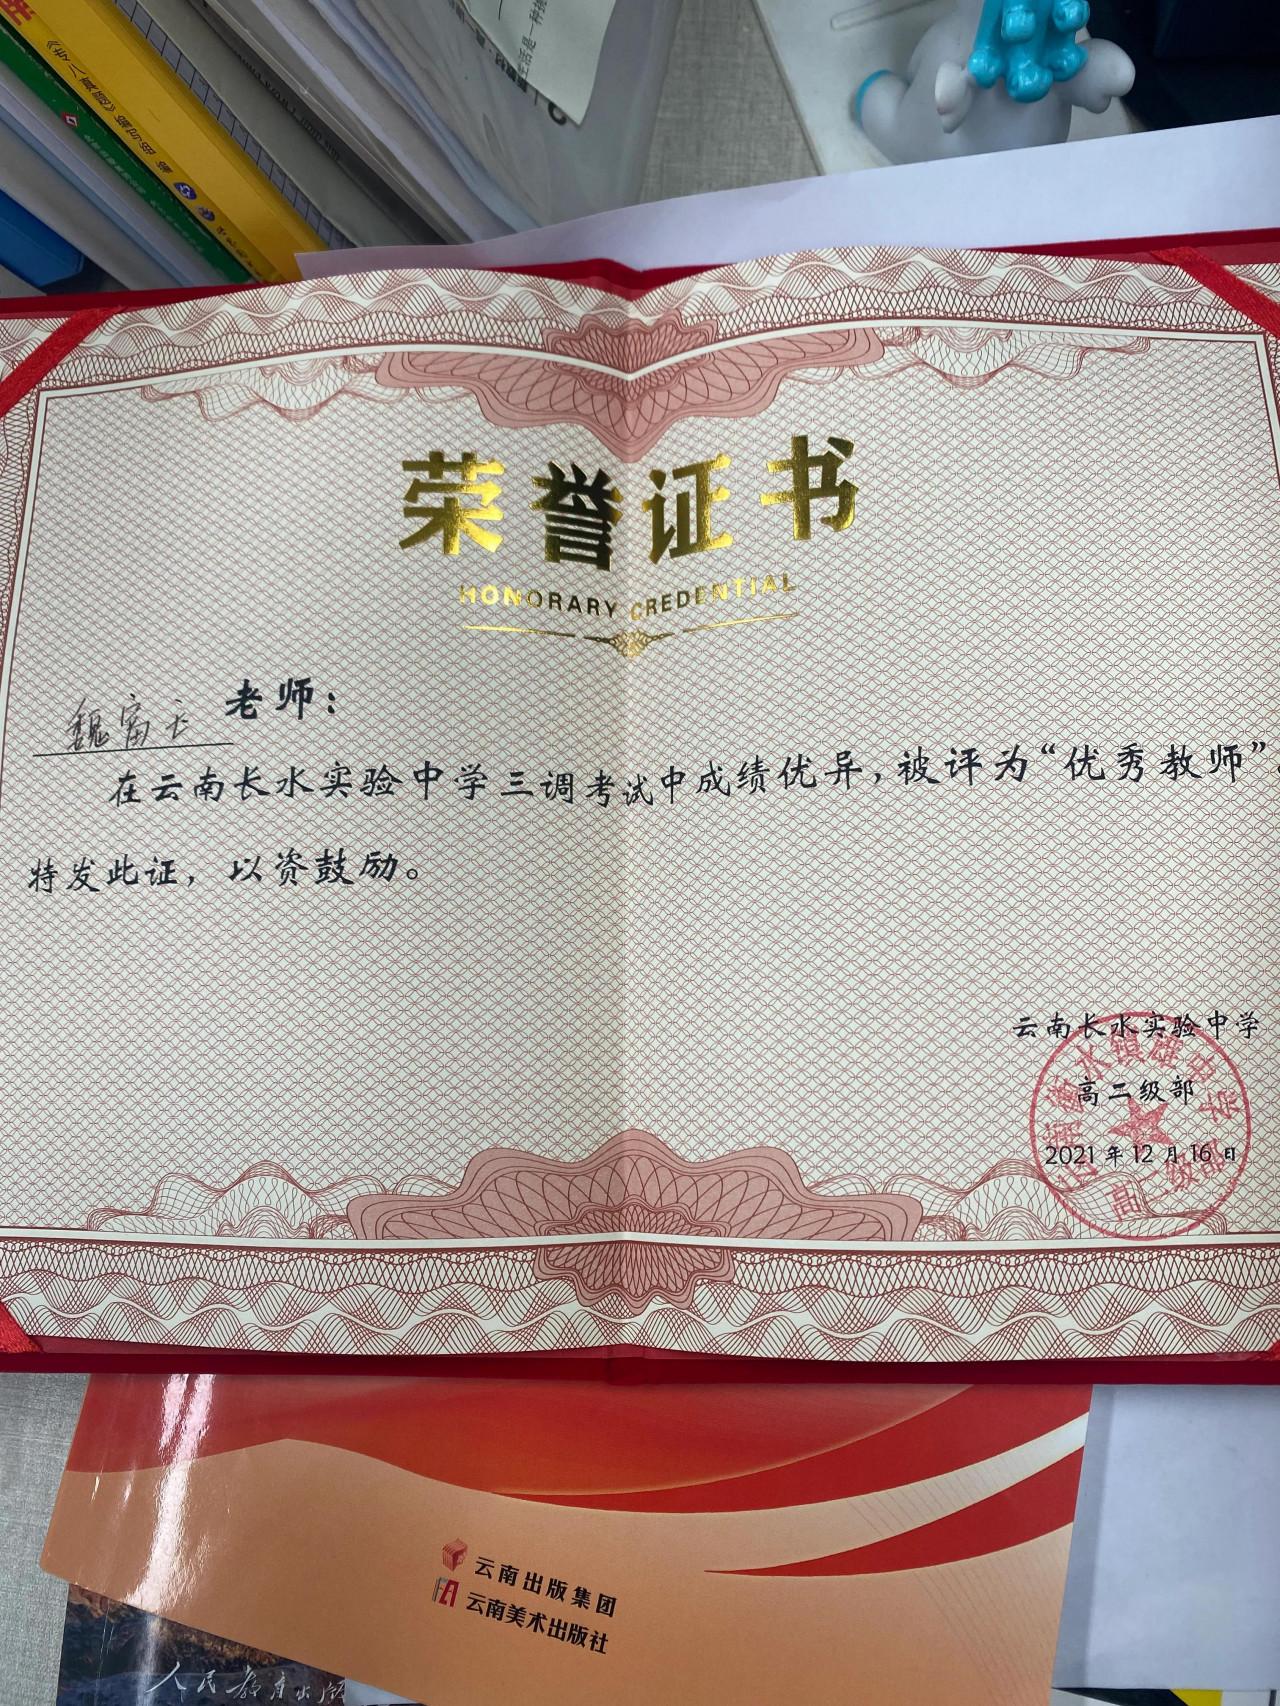 《老人真题》
生活是一种
荣誉证书
HONORARY CREDENTIAL
魏富云 老师：
在云南长水实验中学三调考试中成绩优异，被评为“优秀教师”。
特发此证，以资鼓励。
云南长水实验中学
高二级部
2021年12月16日
云南衡水镇雄中学
高二级部
云南出版集团
云南美术出版社
人民教育出版